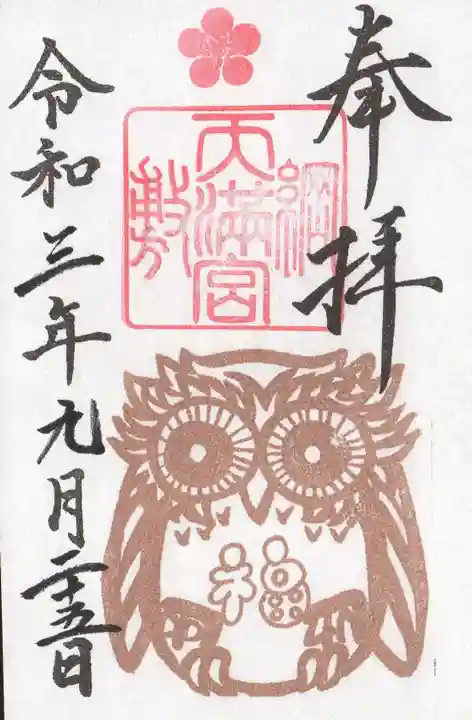 奉拝
綱
天満宮
敷
令和三年元月二十五日
福